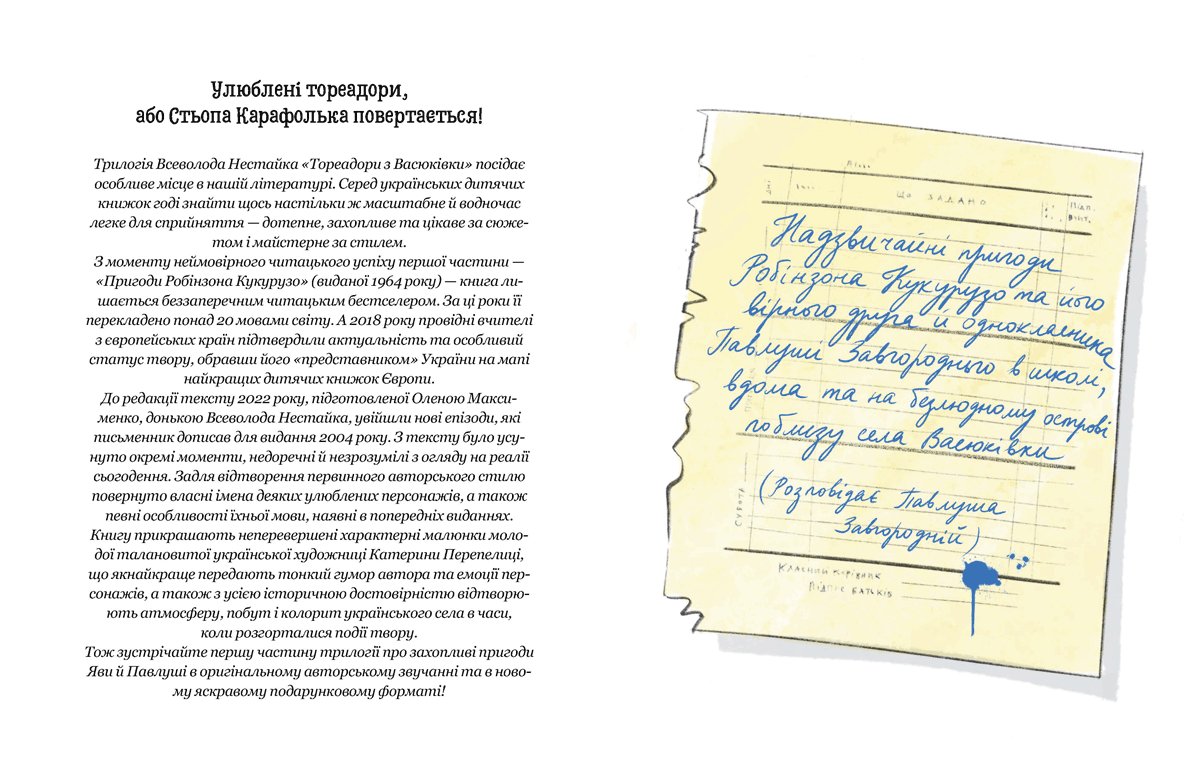 Улюблені тореадори,
або Стьопа Карафолька повертається!
Трилогія Всеволода Нестайка «Тореадори з Васюківки» посідає
особливе місце в нашій літературі. Серед українських дитячих
книжок годі знайти щось настільки ж масштабне й водночас
легке для сприйняття — дотепне, захопливе та цікаве за сюже-
том і майстерне за стилем.
З моменту неймовірного читацького успіху першої частини —
«Пригоди Робінзона Кукурузо» (виданої 1964 року) — книга ли-
шається беззаперечним читацьким бестселером. За ці роки її
перекладено понад 20 мовами світу. А 2018 року провідні вчителі
з європейських країн підтвердили актуальність та особливий
статус твору, обравши його «представником» України на мапі
найкращих дитячих книжок Європи.
До редакції тексту 2022 року, підготовленої Оленою Макси-
менко, донькою Всеволода Нестайка, увійшли нові епізоди, які
письменник дописав для видання 2004 року. З тексту було усу-
нуто окремі моменти, недоречні й незрозумілі з огляду на реалії
сьогодення. Задля відтворення первинного авторського стилю
повернуто власні імена деяких улюблених персонажів, а також
певні особливості їхньої мови, наявні в попередніх виданнях.
Книгу прикрашають неперевершені характерні малюнки моло-
дої талановитої української художниці Катерини Перепелиці,
що якнайкраще передають тонкий гумор автора та емоції пер-
сонажів, а також з усією історичною достовірністю відтворю-
ють атмосферу, побут і колорит українського села в часи,
коли розгорталися події твору.
Тож зустрічайте першу частину трилогії про захопливі пригоди
Яви й Павлуші в оригінальному авторському звучанні та в ново-
му яскравому подарунковому форматі!
ЩО ЗАДАНО
Підп.
вчит.
Надзвичайні пригоди
Робінзона Кукурузо та його
вірного друга й однокласника
Павлуші Завгороднього в школі,
вдома та на безлюдному острові
поблизу села Васюківки
(Розповідає Павлуша
Завгородній)
СУБОТА
Класний керівник
Підпис батьків